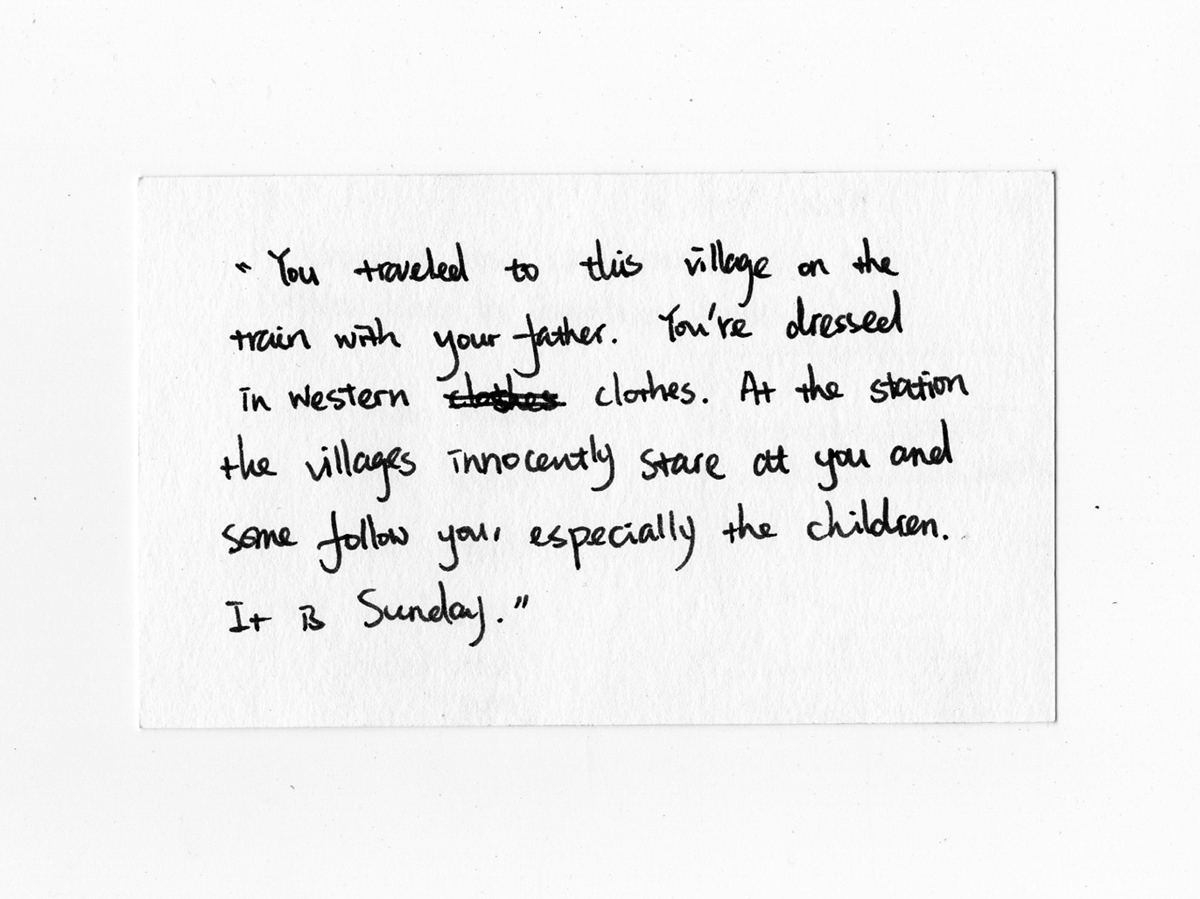 "You traveled to this village on the
train with your father. You're dressed
in western clothes. At the station
the villages innocently stare at you and
some follow you, especially the children.
It is Sunday."